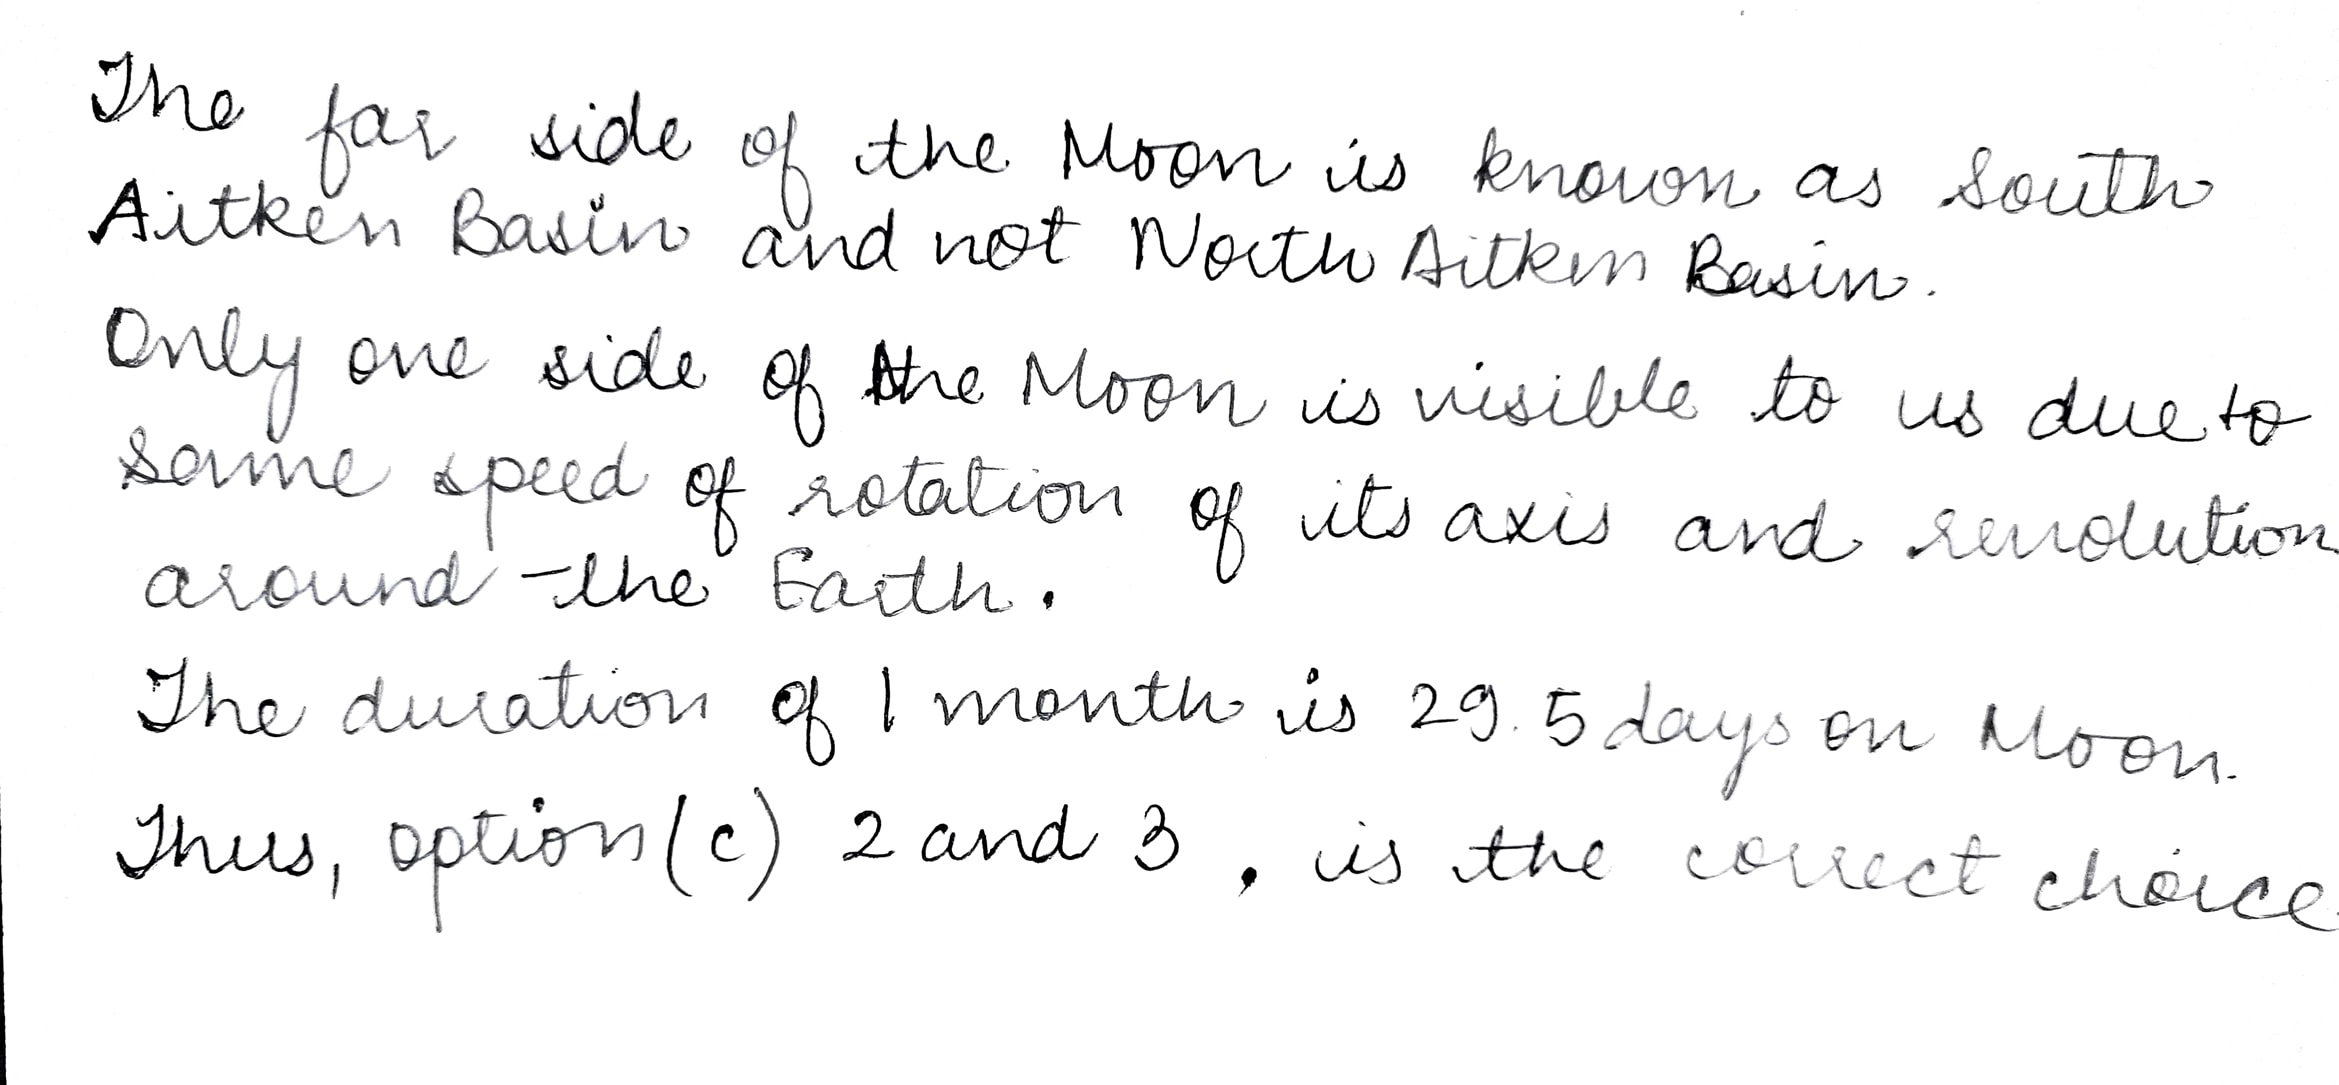 The far side of the Moon is known as South
Aitken Basin and not North Aitken Basin.
Only one side of the Moon is visible to us due to
same speed of rotation of its axis and revolution
around the Earth.
The duration of 1 month is 29.5 days on Moon.
Thus, option (c) 2 and 3, is the correct choice